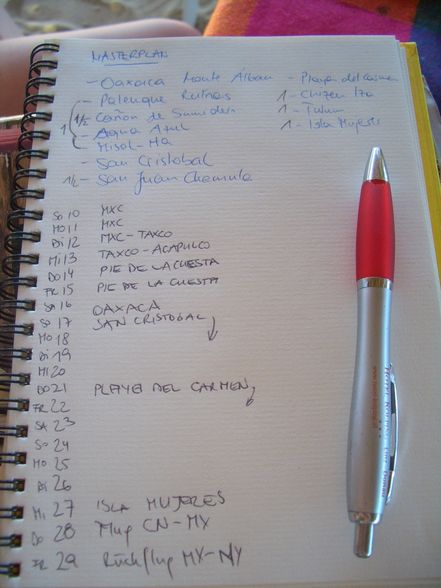 MASTERPLAN
- Oaxaca Monte Álban
- Palenque Ruinas
1/2 Cañon de Sumidero
1 - Agua Azul
- Misol-Ha
- San Cristobal
1/2 - San Juan Chamula
- Playa del Carmen
1 - Chizen Iza
1 - Tulum
1 - Isla Mujeres
So 10 MXC
Mo 11 MXC
Di 12 MXC-TAXCO
Mi 13 TAXCO-ACAPULCO
Do 14 PIE DE LA CUESTA
FR 15 PIE DE LA CUESTA
SA 16 OAXACA
So 17 SAN CRISTOBAL
Mo 18
Di 19
Mi 20
Do 21 PLAYA DEL CARMEN
FR 22
SA 23
So 24
Mo 25
Di 26
Mi 27 ISLA MUJERES
Do 28 Flug CN-MX
FR 29 Rückflug MX-NY